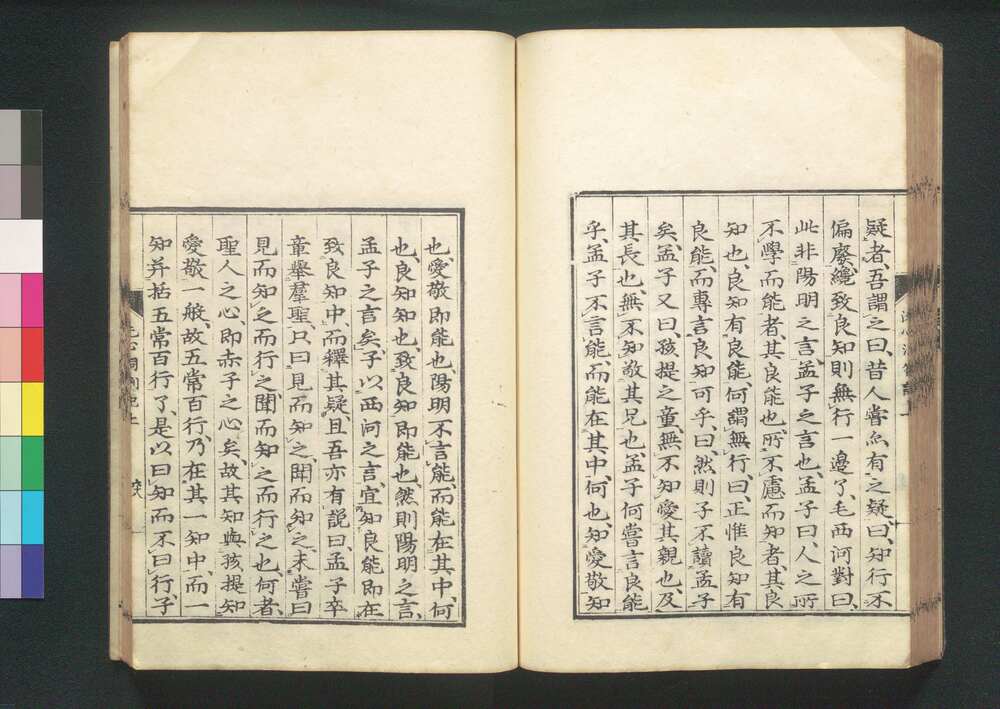 疑者、吾謂之曰、昔人嘗亦有之疑曰、知行不
偏廢、纔致良知則無行一邊了、毛西河對曰、
此非陽明之言孟子之言也、孟子曰、人之所
不學而能者、其良能也、所不慮而知者、其良
知也、良知有良能、何謂無行、曰、正惟良知有
良能、而專言良知可乎、曰、然則子不讀孟子
矣、孟子又曰、孩提之童、無不知愛其親也、及
其長也、無不知敬其兄也、孟子何嘗言良能
乎、孟子不言能、而能在其中、何也、知愛敬知
也、愛敬即能也、陽明不言能、而能在其中、何
也、良知知也、致良知即能也、然則陽明之言、
孟子之言矣、子以西河之言、宜知良能即在
致良知中、而釋其疑、且吾亦有說、曰、孟子卒
章舉羣聖、只曰見而知之、聞而知之、未嘗曰
見而知之而行之、聞而知之而行之也、何者、
聖人之心、即赤子之心矣、故其知與孩提知
愛敬一般、故五常百行、乃在其一知中、而一
知并括五常百行了、是以曰知而不曰行、子